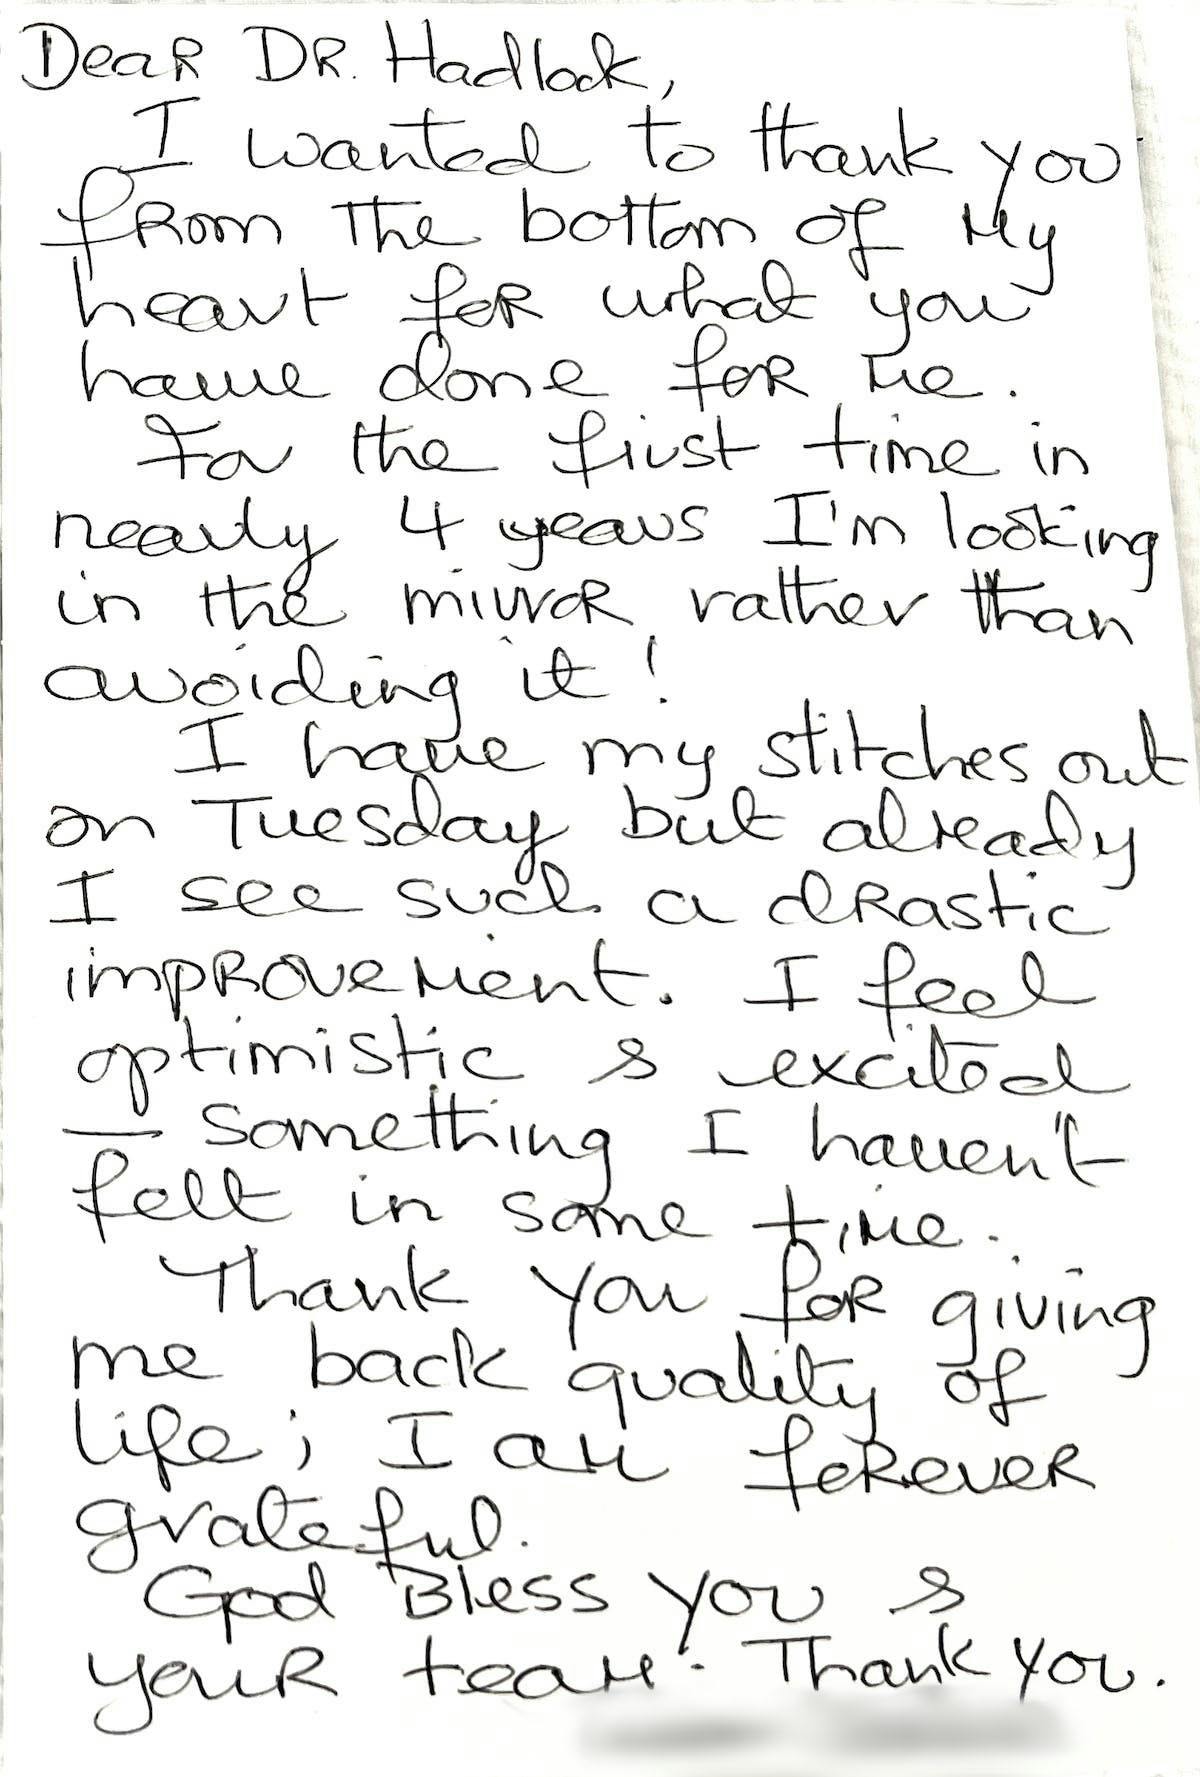 Dear Dr. Hadlock,
I wanted to thank you
from the bottom of my
heart for what you
have done for me.
For the first time in
nearly 4 years I'm looking
in the mirror rather than
avoiding it!
I have my stitches out
on Tuesday but already
I see such a drastic
improvement. I feel
optimistic & excited
— something I haven't
felt in some time.
Thank you for giving
me back quality of
life; I am forever
grateful.
God Bless you &
your team. Thank you.